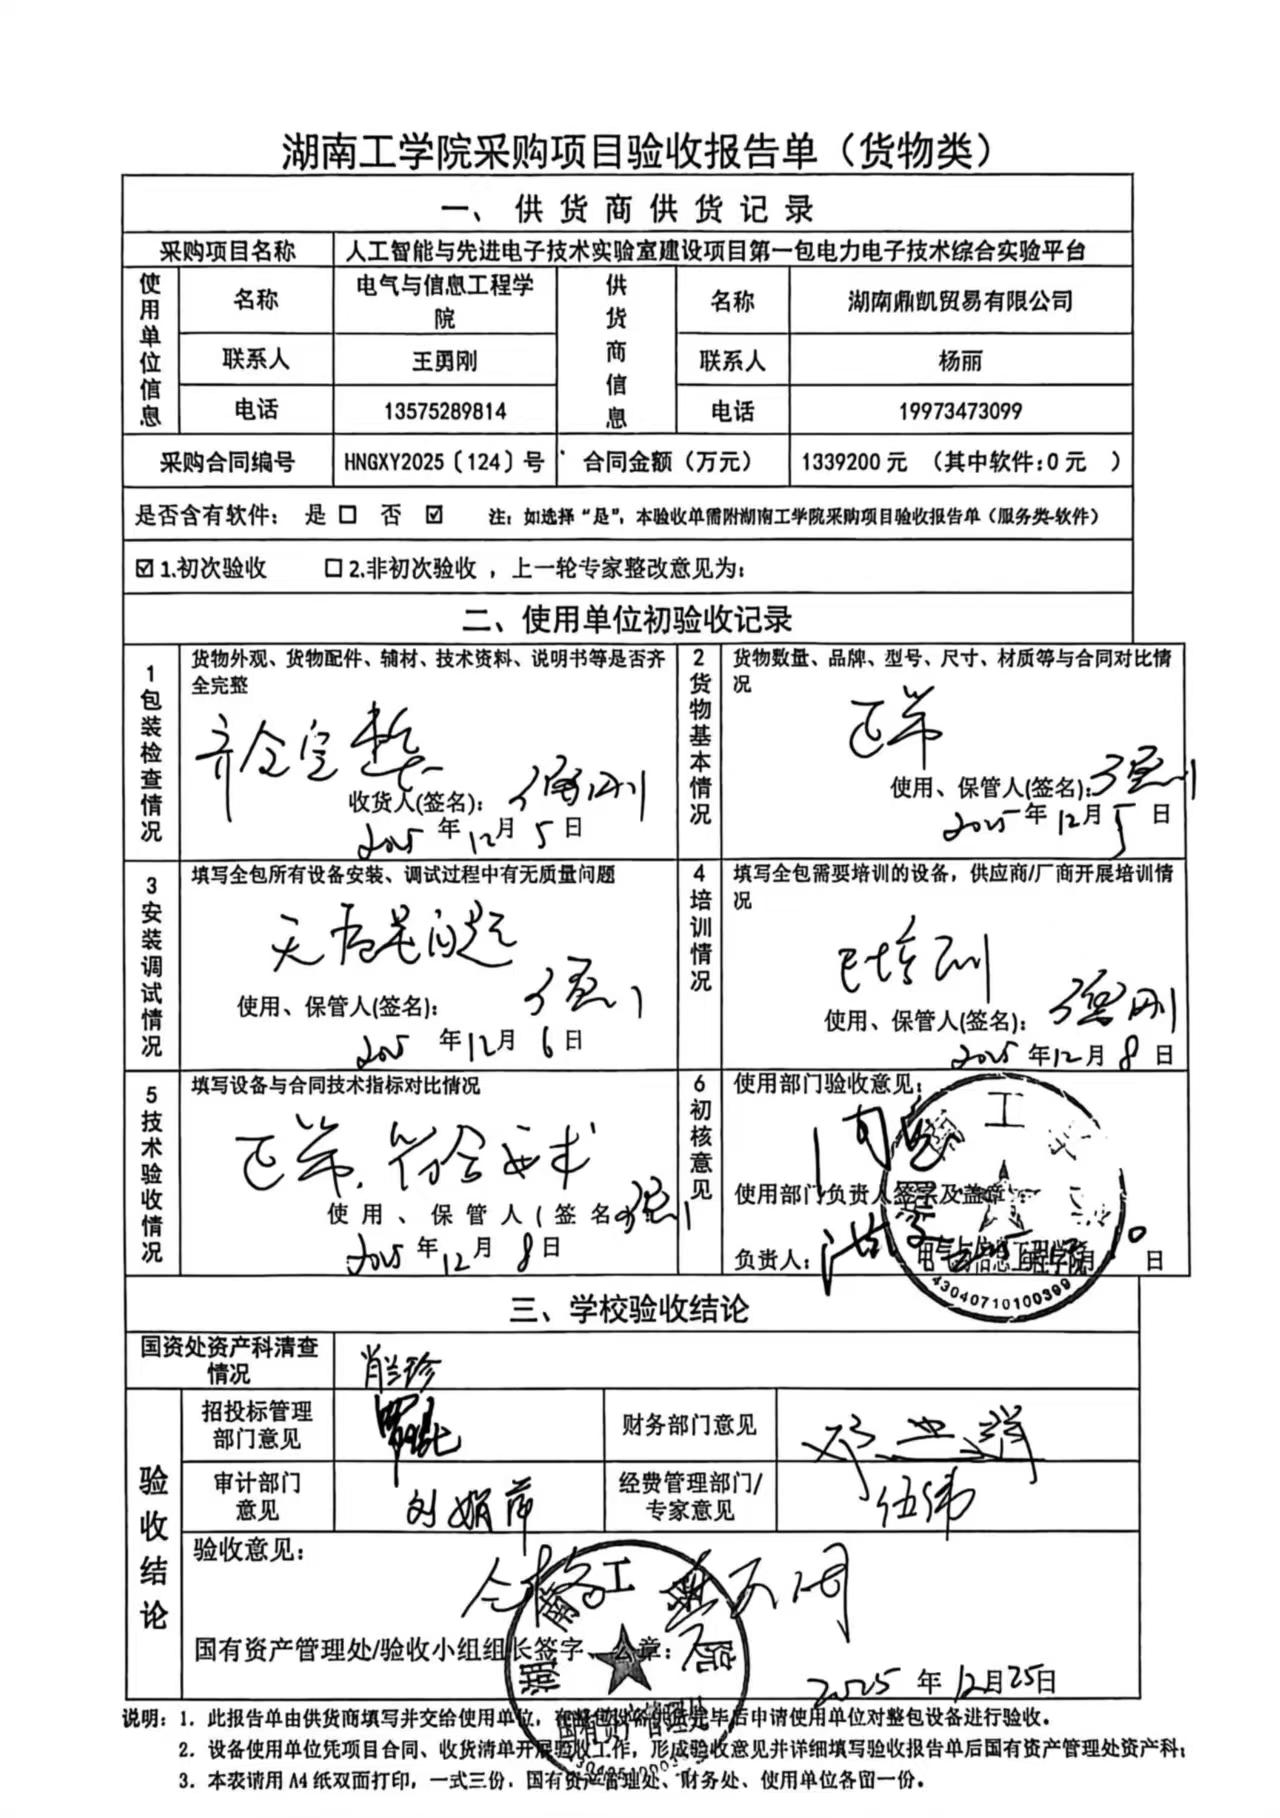 湖南工学院采购项目验收报告单（货物类）
一、供货商供货记录
采购项目名称 人工智能与先进电子技术实验室建设项目第一包电力电子技术综合实验平台
使用单位信息 名称 电气与信息工程学院 供货商信息 名称 湖南鼎凯贸易有限公司
联系人 王勇刚 联系人 杨丽
电话 13575289814 电话 19973473099
采购合同编号 HNGXY2025〔124〕号 合同金额（万元） 1339200元 （其中软件:0元 ）
是否含有软件： 是 □ 否 ☑ 注：如选择“是”，本验收单需附湖南工学院采购项目验收报告单（服务类-软件）
☑ 1.初次验收 □ 2.非初次验收 ，上一轮专家整改意见为：
二、使用单位初验收记录
1包装检查情况
货物外观、货物配件、辅材、技术资料、说明书等是否齐
全完整
齐全完整
收货人(签名)：
2025年12月5日
2货物基本情况
货物数量、品牌、型号、尺寸、材质等与合同对比情
况
正常
使用、保管人(签名)：
2025年12月5日
3安装调试情况
填写全包所有设备安装、调试过程中有无质量问题
无质量问题
使用、保管人(签名)：
2025年12月6日
4培训情况
填写全包需要培训的设备，供应商/厂商开展培训情
况
已培训
使用、保管人(签名)：
2025年12月8日
5技术验收情况
填写设备与合同技术指标对比情况
正常，符合要求
使用、保管人(签名
2025年12月8日
6初核意见
使用部门验收意见：
同意
使用部门负责人签字及盖章
负责人： 日
电气与信息工程学院
43040710100399
三、学校验收结论
国资处资产科清查
情况
肖兰珍
验收结论
招投标管理
部门意见
财务部门意见
审计部门
意见
刘娟萍
经费管理部门/
专家意见
伍伟
验收意见：
合格
国有资产管理处/验收小组组长签字、公章：
湖南工学院
国有资产管理处
2025年12月25日
说明：1. 此报告单由供货商填写并交给使用单位，在整包设备供货完毕后申请使用单位对整包设备进行验收。
2. 设备使用单位凭项目合同、收货清单开展验收工作，形成验收意见并详细填写验收报告单后国有资产管理处资产科；
3. 本表请用 A4 纸双面打印，一式三份，国有资产管理处、财务处、使用单位各留一份。